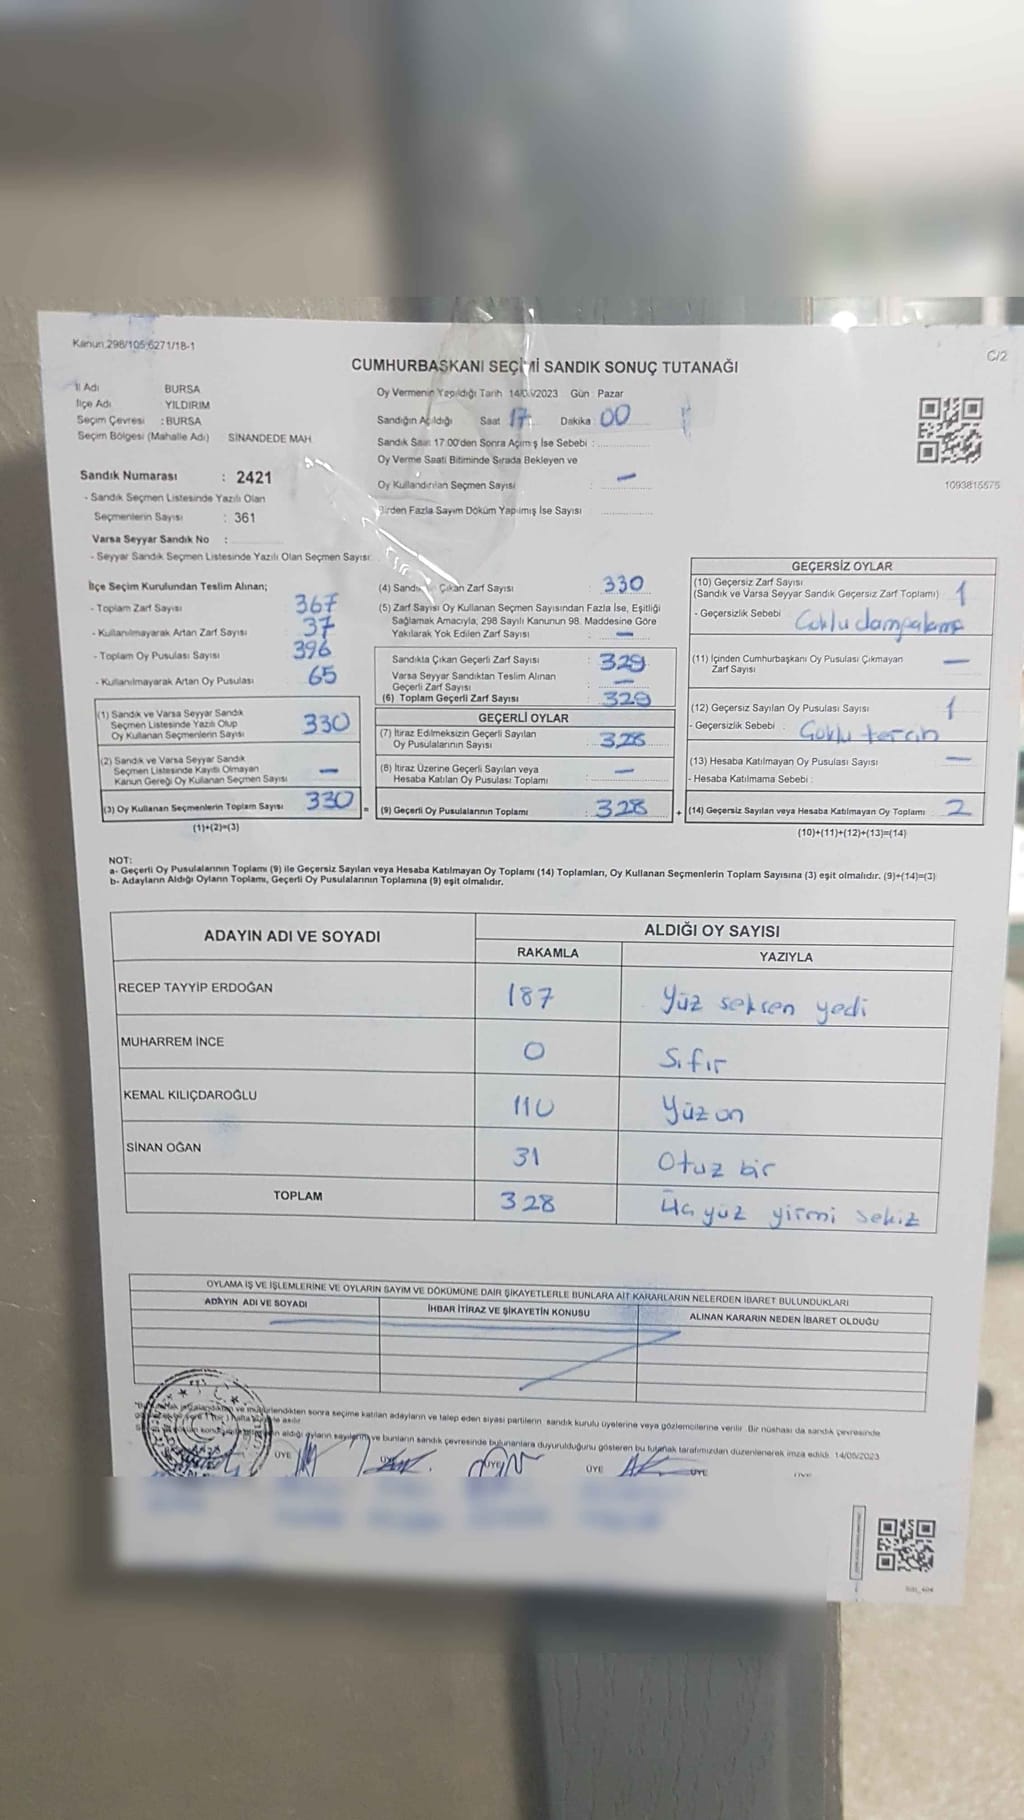 Kanun 298/105,6271/18-1
C/2
CUMHURBAŞKANI SEÇİMİ SANDIK SONUÇ TUTANAĞI
İl Adı BURSA
İlçe Adı YILDIRIM
Seçim Çevresi : BURSA
Seçim Bölgesi (Mahalle Adı) SİNANDEDE MAH.
Sandık Numarası : 2421
- Sandık Seçmen Listesinde Yazılı Olan
Seçmenlerin Sayısı : 361
Varsa Seyyar Sandık No :
- Seyyar Sandık Seçmen Listesinde Yazılı Olan Seçmen Sayısı:
Oy Vermenin Yapıldığı Tarih 14/05/2023 Gün Pazar
Sandığın Açıldığı Saat 17 Dakika 00
Sandık Saat 17:00'den Sonra Açımış İse Sebebi :
Oy Verme Saati Bitiminde Sırada Bekleyen ve
Oy Kullandırılan Seçmen Sayısı : —
Birden Fazla Sayım Döküm Yapılmış İse Sayısı
1093815575
İlçe Seçim Kurulundan Teslim Alınan;
- Toplam Zarf Sayısı 367
- Kullanılmayarak Artan Zarf Sayısı 37
- Toplam Oy Pusulası Sayısı 396
- Kullanılmayarak Artan Oy Pusulası 65
(1) Sandık ve Varsa Seyyar Sandık
Seçmen Listesinde Yazılı Olup
Oy Kullanan Seçmenlerin Sayısı 330
(2) Sandık ve Varsa Seyyar Sandık
Seçmen Listesinde Kayıtlı Olmayan
Kanun Gereği Oy Kullanan Seçmen Sayısı —
(3) Oy Kullanan Seçmenlerin Toplam Sayısı 330 =
(1)+(2)=(3)
(4) Sandıktan Çıkan Zarf Sayısı : 330
(5) Zarf Sayısı Oy Kullanan Seçmen Sayısından Fazla İse, Eşitliği
Sağlamak Amacıyla, 298 Sayılı Kanunun 98. Maddesine Göre
Yakılarak Yok Edilen Zarf Sayısı : —
Sandıkta Çıkan Geçerli Zarf Sayısı : 329
Varsa Seyyar Sandıktan Teslim Alınan
Geçerli Zarf Sayısı : —
(6) Toplam Geçerli Zarf Sayısı : 329
GEÇERLİ OYLAR
(7) İtiraz Edilmeksizin Geçerli Sayılan
Oy Pusulalarının Sayısı : 328
(8) İtiraz Üzerine Geçerli Sayılan veya
Hesaba Katılan Oy Pusulası Toplamı : —
(9) Geçerli Oy Pusulalarının Toplamı : 328 +
GEÇERSİZ OYLAR
(10) Geçersiz Zarf Sayısı
(Sandık ve Varsa Seyyar Sandık Geçersiz Zarf Toplamı) 1
- Geçersizlik Sebebi : Çoklu dampalama
(11) İçinden Cumhurbaşkanı Oy Pusulası Çıkmayan
Zarf Sayısı —
(12) Geçersiz Sayılan Oy Pusulası Sayısı 1
- Geçersizlik Sebebi : Çoklu tercih
(13) Hesaba Katılmayan Oy Pusulası Sayısı —
- Hesaba Katılmama Sebebi :
(14) Geçersiz Sayılan veya Hesaba Katılmayan Oy Toplamı : 2
(10)+(11)+(12)+(13)=(14)
NOT:
a- Geçerli Oy Pusulalarının Toplamı (9) ile Geçersiz Sayılan veya Hesaba Katılmayan Oy Toplamı (14) Toplamları, Oy Kullanan Seçmenlerin Toplam Sayısına (3) eşit olmalıdır. (9)+(14)=(3)
b- Adayların Aldığı Oyların Toplamı, Geçerli Oy Pusulalarının Toplamına (9) eşit olmalıdır.
ADAYIN ADI VE SOYADI ALDIĞI OY SAYISI
RAKAMLA YAZIYLA
RECEP TAYYİP ERDOĞAN 187 Yüz seksen yedi
MUHARREM İNCE 0 Sıfır
KEMAL KILIÇDAROĞLU 110 Yüz on
SİNAN OĞAN 31 Otuz bir
TOPLAM 328 Üç yüz yirmi sekiz
OYLAMA İŞ VE İŞLEMLERİNE VE OYLARIN SAYIM VE DÖKÜMÜNE DAİR ŞİKAYETLERLE BUNLARA AİT KARARLARIN NELERDEN İBARET BULUNDUKLARI
ADAYIN ADI VE SOYADI İHBAR İTİRAZ VE ŞİKAYETİN KONUSU ALINAN KARARIN NEDEN İBARET OLDUĞU
sonra seçime katılan adayların ve talep eden siyasi partilerin sandık kurulu üyelerine veya gözlemcilerine verilir. Bir nüshası da sandık çevresinde
asılır.
aldığı oyların sayılarını ve bunların sandık çevresinde bulunanlara duyurulduğunu gösteren bu tutanak tarafımızdan düzenlenerek imza edildi. 14/05/2023
ÜYE ÜYE ÜYE ÜYE ÜYE ÜYE